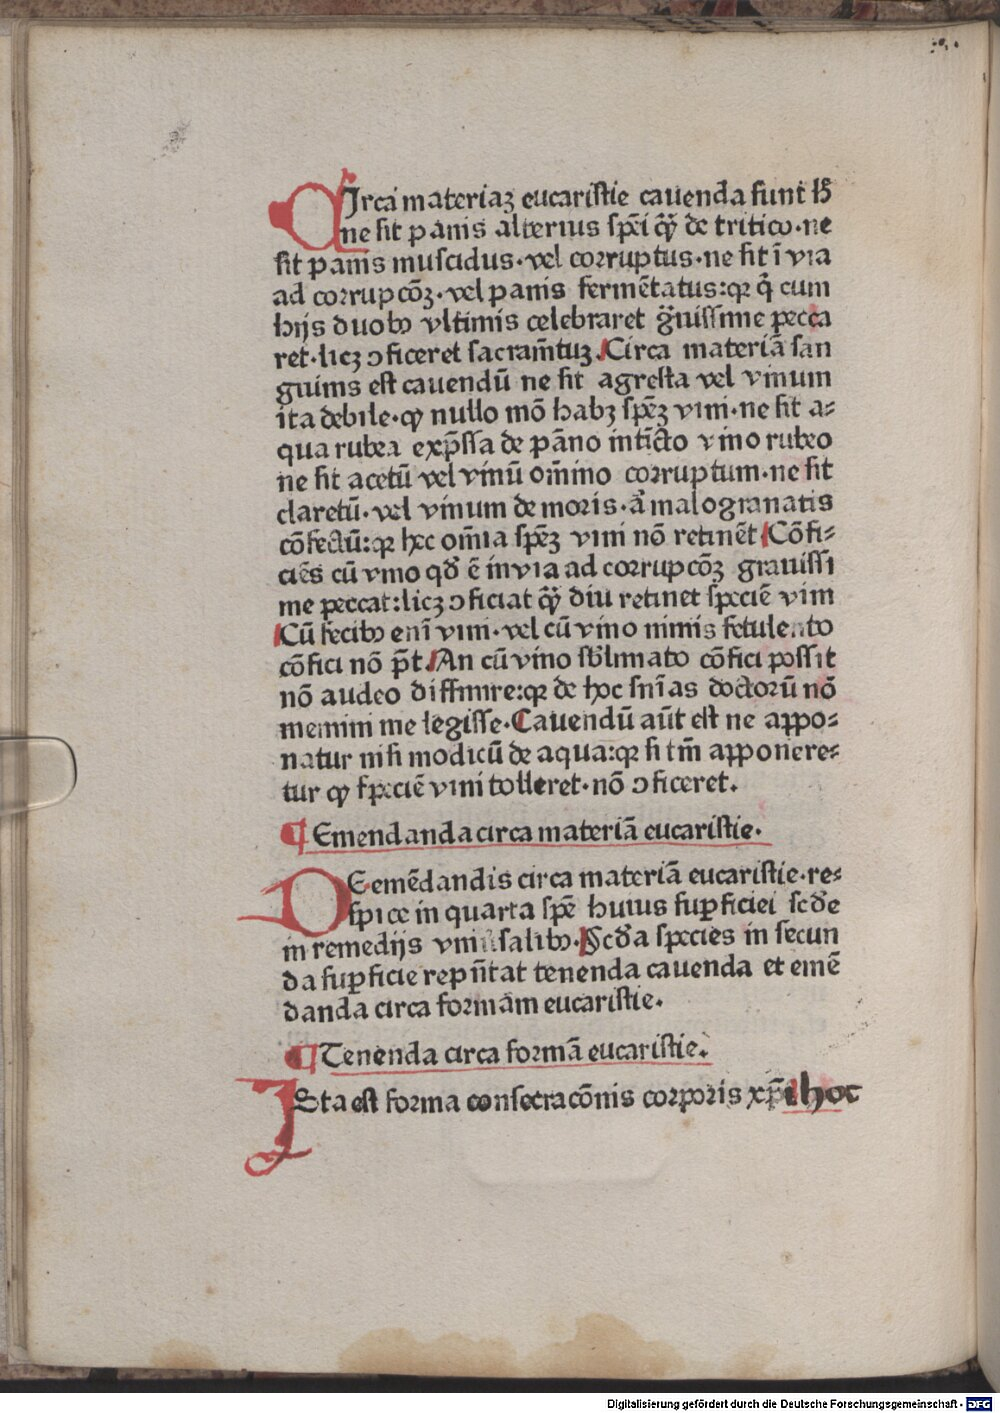 CIrca materiaꝫ eucaristie cauenda sunt hͨ
ne sit panis alterius spēi qͣꝫ de tritico·ne
sit panis muscidus·vel corruptus·ne sit ī via
ad corrupcōꝫ·vel panis fermētatus:qꝛ qͥ cum
hijs duobꝰ vltimis celebraret gͣuissime pecca
ret·licꝫ ↄficeret sacram̄tuꝫ.Circa materiā san
guinis est cauendū ne sit agresta vel vinum
ita debile·ꝙ nullo mō habꝫ spēꝫ vini·ne sit a⸗
qua rubea exp̄ssa de panno intīcto vino rubeo
ne sit acetū vel vinū om̄ino corruptum·ne sit
claretū·vel vinum de moris·aͧ malogranatis
cōfectū:qꝛ hec om̄ia spēꝫ vini nō retinēt Cōfi⸗
ciēs cū vino qd̓ ē in via ad corrupcōꝫ grauissi
me peccat:licꝫ ↄficiat qͣꝫ diu retinet speciē vini
Cū fecibꝰ enī vini·vel cū vino nimis fetulento
cōfici nō p̄t.An cū vino sb̓limato cōfici possit
nō audeo diffinire:qꝛ de hoc snīas doctorū nō
memini me legisse·Cauendū aūt est ne appo⸗
natur nisi modicū de aqua:qꝛ si tm̄ apponere⸗
tur ꝙ speciē vini tolleret·nō ↄficeret.
¶ Emendanda circa materiā eucaristie.
DE emēdandis circa materiā eucaristie·re⸗
spice in quarta spē huius suꝑficiei scd̓e
in remedijs vniu̓salibꝰ.Scd̓a species in secun
da suꝑficie rep̄ntat tenenda cauenda et emē
danda circa formam eucaristie.
¶ Tenenda circa formā eucaristie.
ISta est forma consecracōnis corporis xp̄i hoc
Digitalisierung gefördert durch die Deutsche Forschungsgemeinschaft - DFG